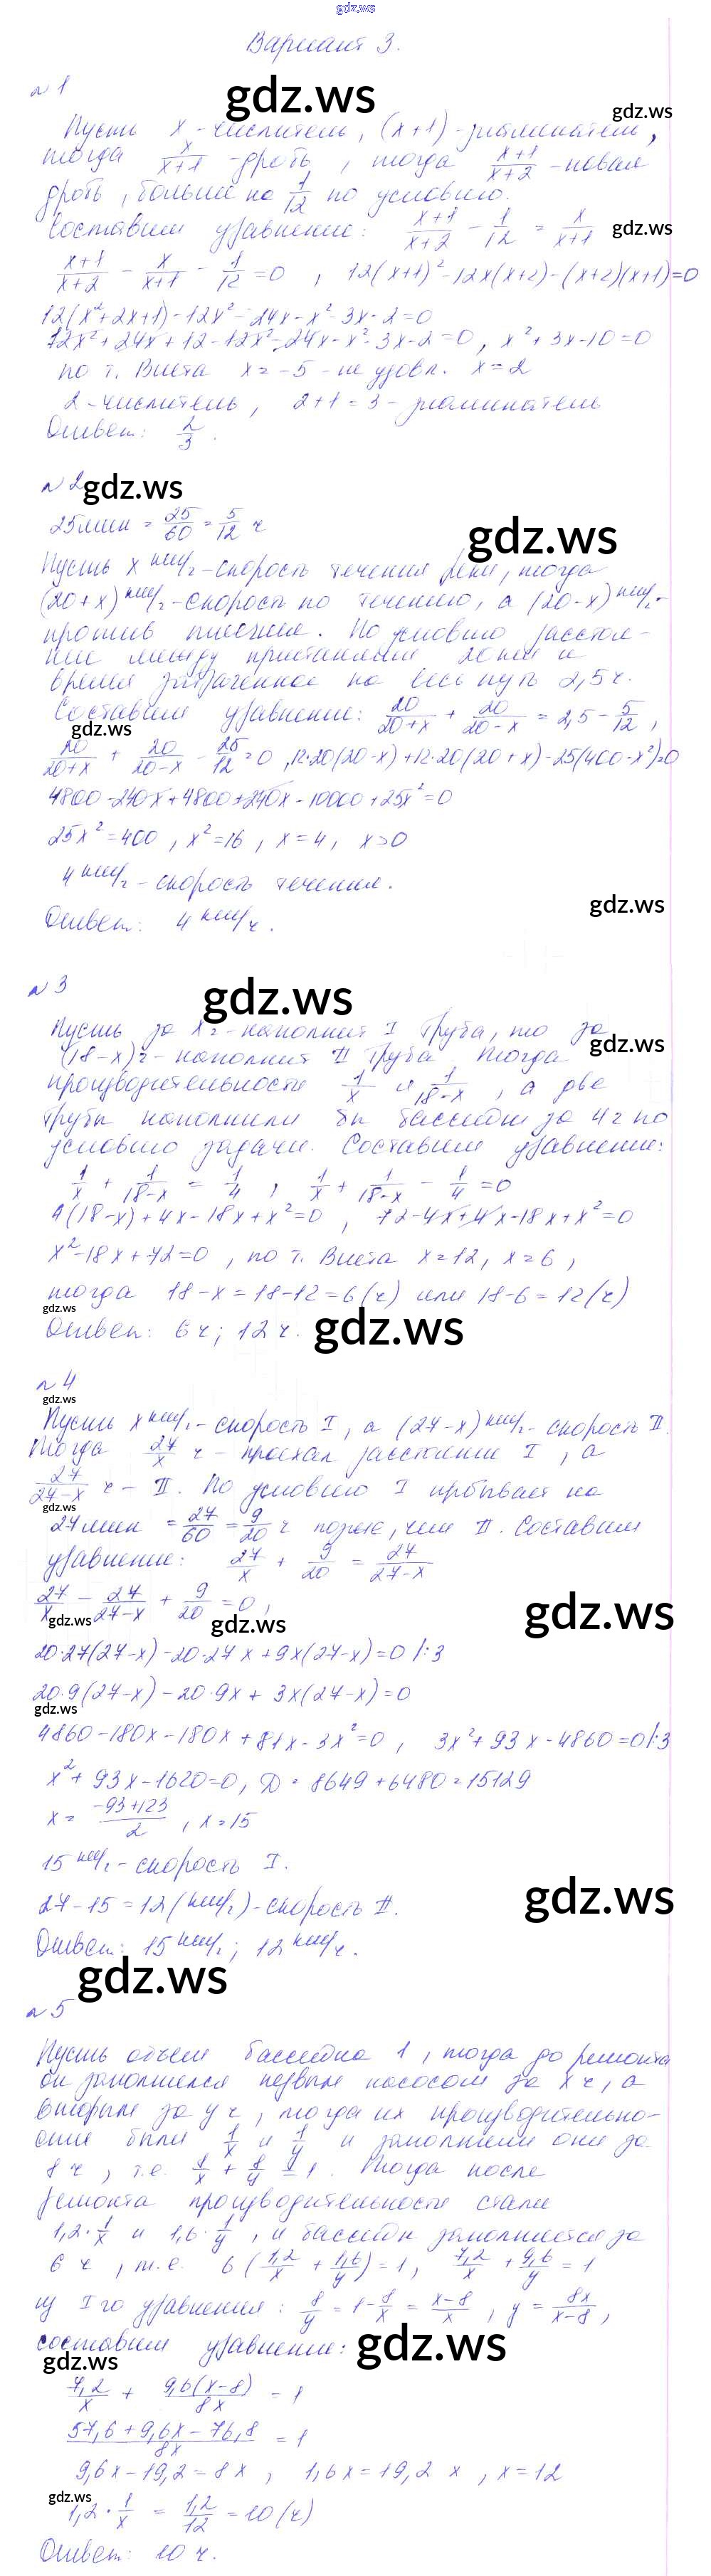 gdz.ws
Вариант 3.
№1
gdz.ws
gdz.ws
Пусть x - числитель, (x+1) - знаменатель,
тогда x/(x+1) - дробь, тогда (x+1)/(x+2) - новая
дробь, больше на 1/12 по условию.
Составим уравнение: (x+1)/(x+2) - 1/12 = x/(x+1)
gdz.ws
(x+1)/(x+2) - x/(x+1) - 1/12 = 0, 12(x+1)²-12x(x+2)-(x+2)(x+1)=0
12(x²+2x+1)-12x²-24x-x²-3x-2=0
12x²+24x+12-12x²-24x-x²-3x-2=0, x²+3x-10=0
по т. Виета x=-5 - не удовл. x=2
2 - числитель, 2+1=3 - знаменатель
Ответ: 2/3.
№2
gdz.ws
25 мин = 25/60 = 5/12 ч
gdz.ws
Пусть x км/ч - скорость течения реки, тогда
(20+x) км/ч - скорость по течению, а (20-x) км/ч -
против течения. По условию расстоя-
ние между пристанями 20 км и
время затраченное на весь путь 2,5 ч.
Составим уравнение: 20/(20+x) + 20/(20-x) = 2,5 - 5/12,
gdz.ws
20/(20+x) + 20/(20-x) - 25/12 = 0, 12·20(20-x)+12·20(20+x)-25(400-x²)=0
4800-240x+4800+240x-10000+25x²=0
25x²=400, x²=16, x=4, x>0
4 км/ч - скорость течения.
gdz.ws
Ответ: 4 км/ч.
№3
gdz.ws
Пусть за x ч - наполнит I труба, то за
gdz.ws
(18-x) ч - наполнит II труба. Тогда
производительности 1/x и 1/(18-x), а две
трубы наполнили бы бассейн за 4 ч по
условию задачи. Составим уравнение:
1/x + 1/(18-x) = 1/4, 1/x + 1/(18-x) - 1/4 = 0
4(18-x)+4x-18x+x²=0, 72-4x+4x-18x+x²=0
x²-18x+72=0, по т. Виета x=12, x=6,
тогда 18-x=18-12=6(ч) или 18-6=12(ч)
gdz.ws
Ответ: 6 ч; 12 ч.
gdz.ws
№4
gdz.ws
Пусть x км/ч - скорость I, а (27-x) км/ч - скорость II.
Тогда 27/x ч - проехал расстояние I, а
27/(27-x) ч - II. По условию I прибывает на
gdz.ws
27 мин = 27/60 = 9/20 ч позже, чем II. Составим
уравнение: 27/x + 9/20 = 27/(27-x)
27/x - 27/(27-x) + 9/20 = 0,
gdz.ws
gdz.ws
gdz.ws
20·27(27-x)-20·27x+9x(27-x)=0 /:3
20·9(27-x)-20·9x+3x(27-x)=0
gdz.ws
4860-180x-180x+81x-3x²=0, 3x²+93x-4860=0/:3
x²+93x-1620=0, D=8649+6480=15129
x=(-93+123)/2, x=15
15 км/ч - скорость I.
27-15=12 (км/ч) - скорость II.
gdz.ws
Ответ: 15 км/ч; 12 км/ч.
gdz.ws
№5
Пусть объем бассейна 1, тогда до ремонта
он заполнился первым насосом за x ч, а
вторым за y ч, тогда их производительно-
сти были 1/x и 1/y и заполнили они за
8 ч, т.е. 8/x + 8/y = 1. Тогда после
ремонта производительности стали
1,2·1/x и 1,6·1/y, и бассейн заполняется за
6 ч, т.е. 6(1,2/x + 1,6/y)=1, 7,2/x + 9,6/y = 1
из I го уравнения: 8/y = 1-8/x = (x-8)/x, y = 8x/(x-8),
составим уравнение:
gdz.ws
gdz.ws
7,2/x + 9,6(x-8)/8x = 1
(57,6+9,6x-76,8)/8x = 1
9,6x-19,2=8x, 1,6x=19,2 x, x=12
gdz.ws
1,2·1/x = 1,2/12 = 10(ч)
Ответ: 10 ч.